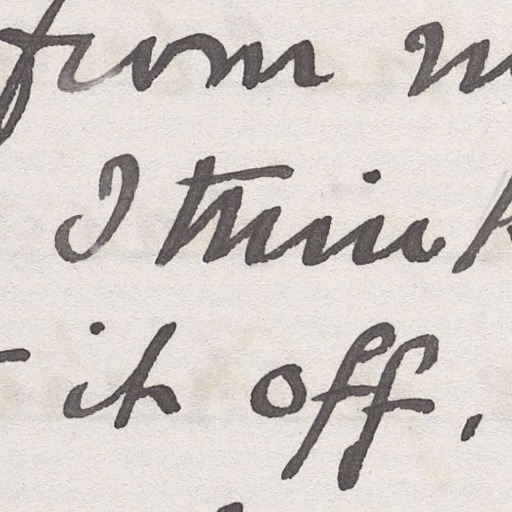 from m
I think
it off.